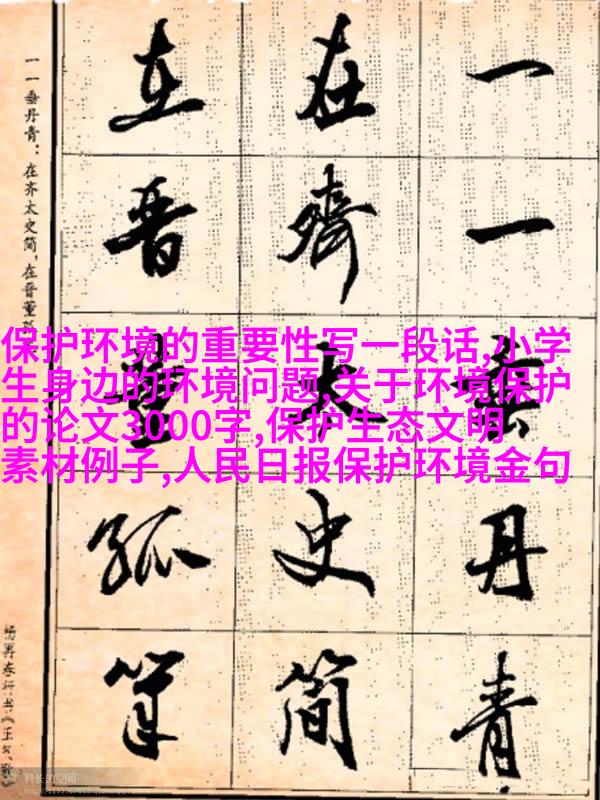 保护环境的重要性写一段话,小学
生身边的环境问题,关于环境保护
的论文3000字,保护生态文明
素材例子,人民日报保护环境金句
一一垂丹青
在齊太史简
在晋董狐筆
一一垂丹青：在齐太史简，在晋董
杨再春行书《正气
科长的空间